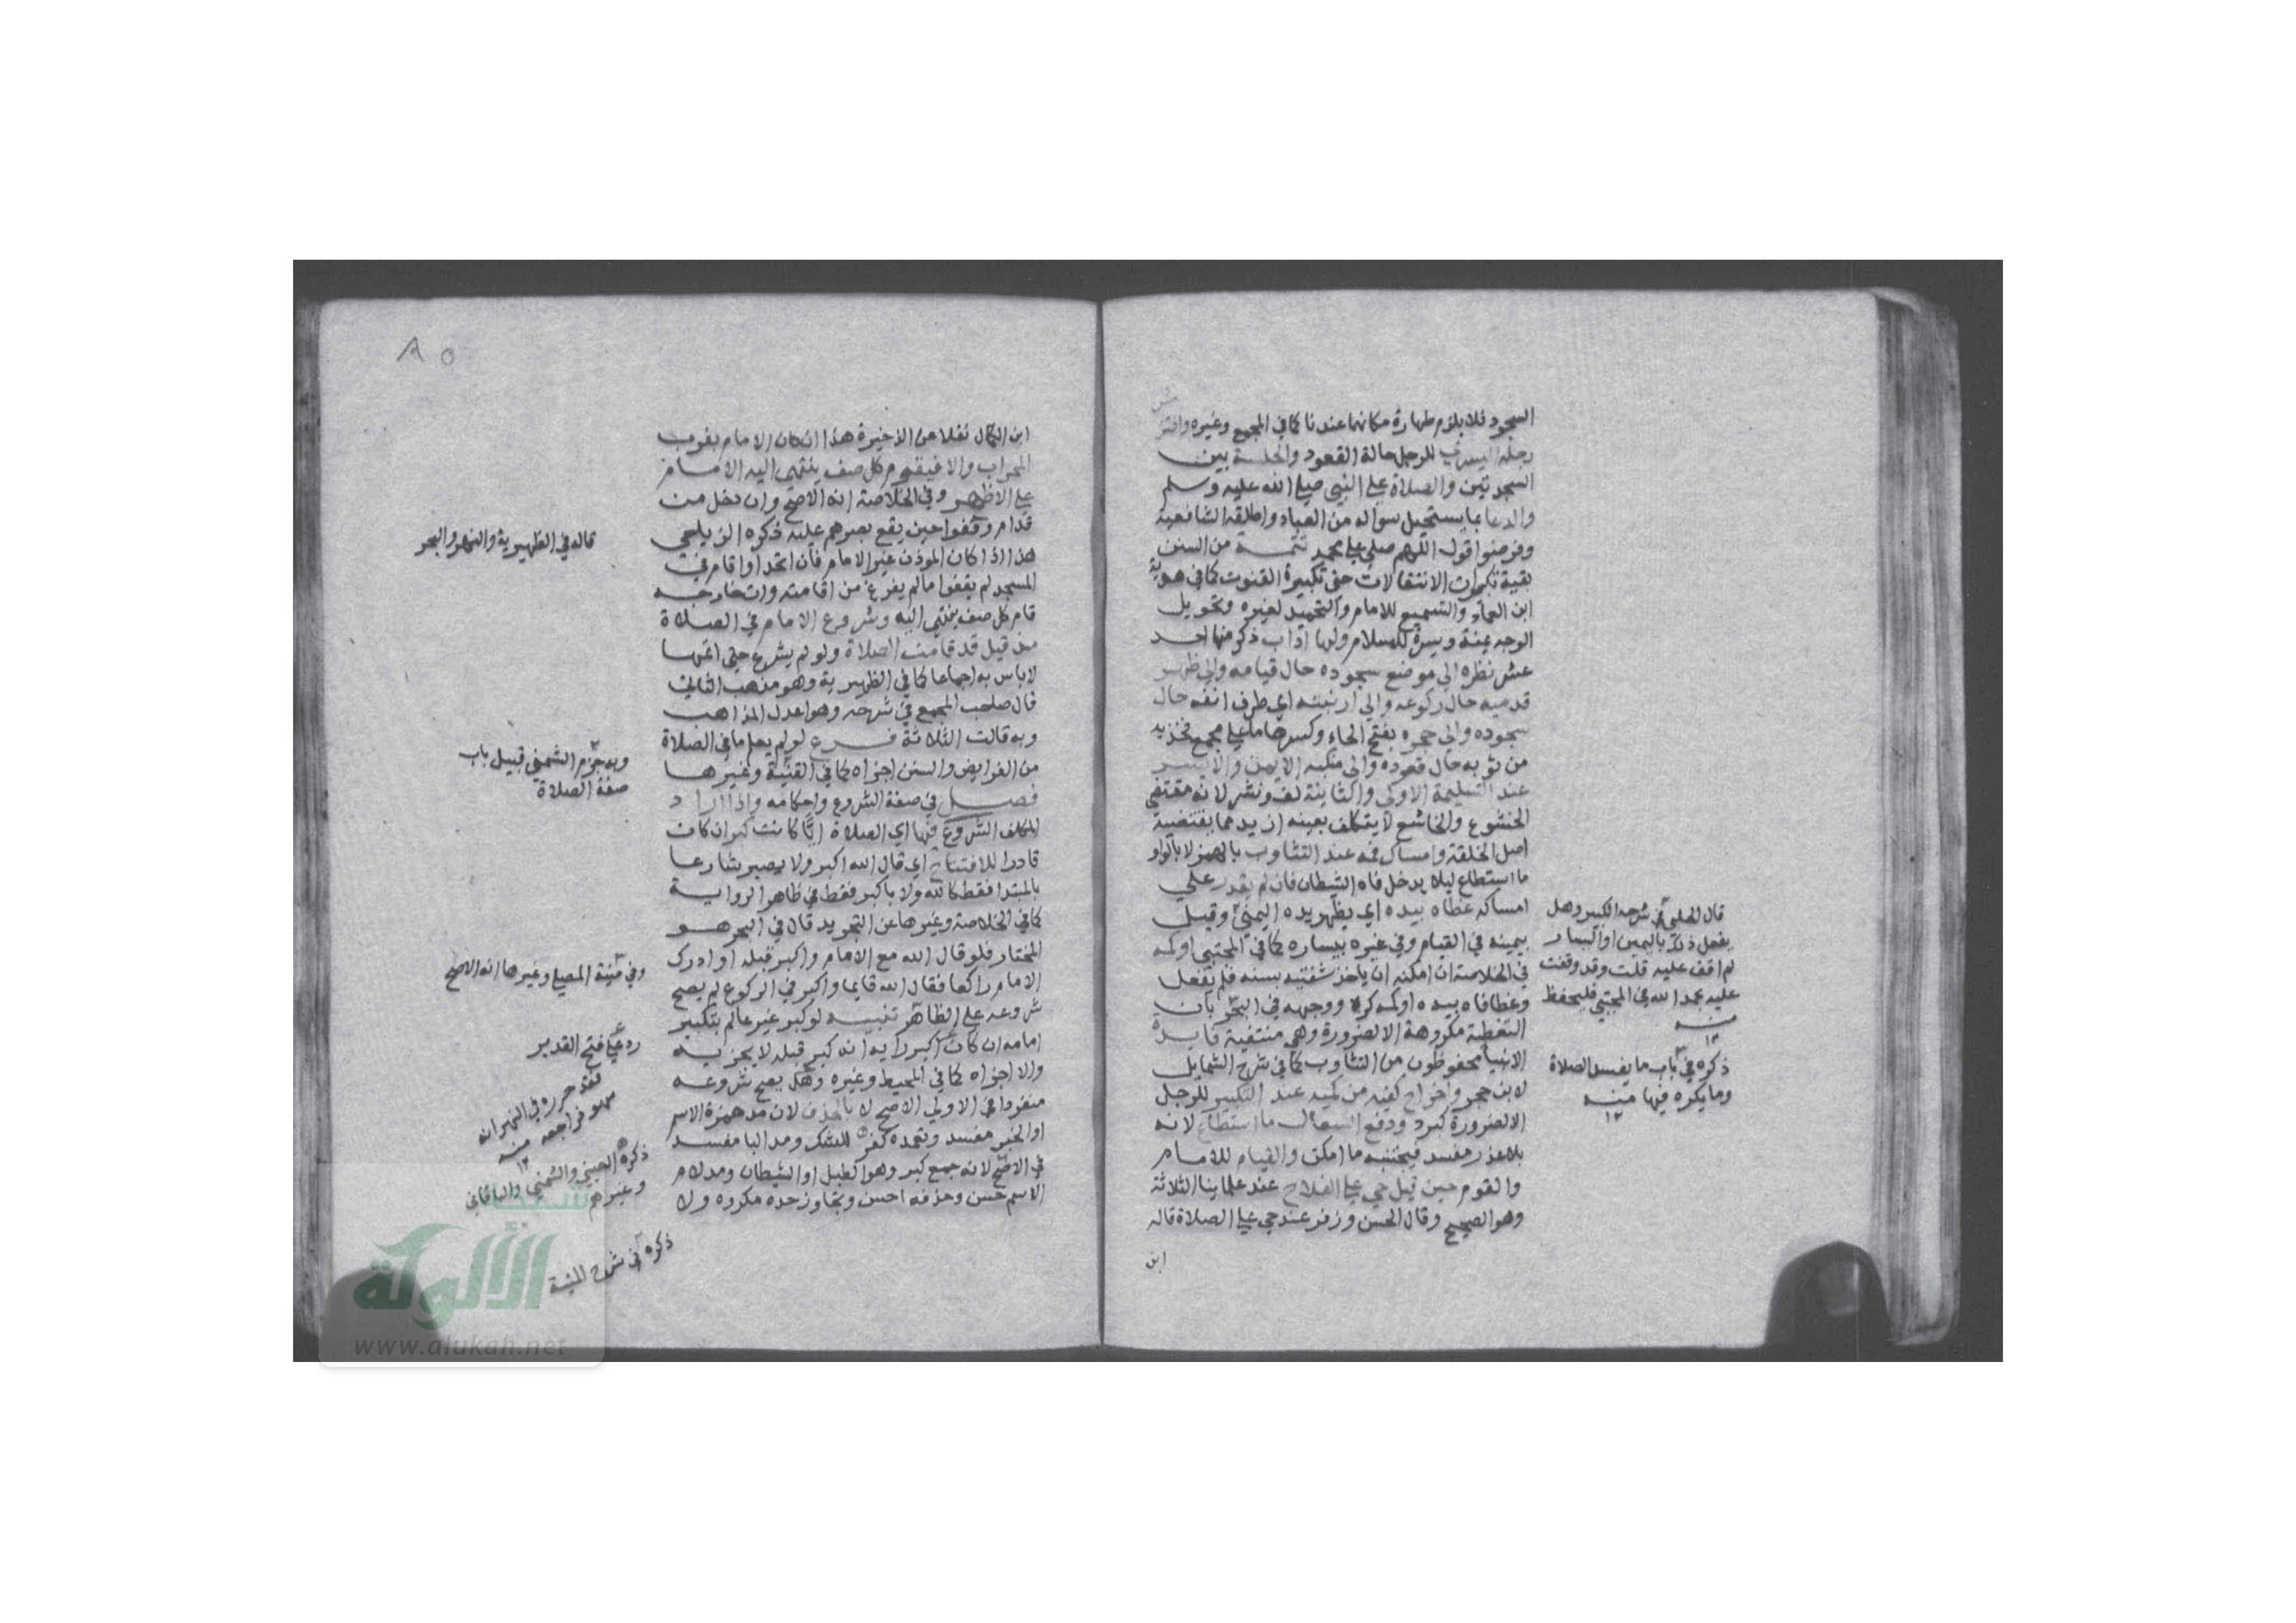 السجود فلا يلزم طهارة مكانها عندنا كما في المجمع وغيره وافترا
ش
رجله اليسرى للرجل حالة القعود والجلسة بين
السجدتين والصلاة على النبي صلى الله عليه وسلم
والدعا بما يستحيل سواله من العباد واطلقه الشافعية
وفرضوا قول اللهم صلي على محمد تتمــة من السنن
بقية تكبيرات الانتقالات حتى تكبيرة القنوت كما في هدية
ابن العماد والتسميع للامام والتحميد لغيره وتحويل
الوجه يمنة ويسرة للسلام ولها اداب ذكر منها احد
عشر نظره الى موضع سجوده حال قيامه والى ظهر
قدميه حال ركوعه والى ارنبته اي طرف انفه حال
سجوده والى حجره بفتح الحاء وكسرها ما على مجمع فخذيه
من ثوبه حال قعوده والى منكبه الايمن والايسر
عند التسليمة الاولى والثانية لف ونشر لانه مقتضى
الخشوع والخاشع لا يتكلف بعينه ازيد مما يقتضيه
اصل الخلقة وامساك فمه عند التثاوب بالهمز لا بالواو
ما استطاع ليلا يدخل فاه الشيطان فان لم يقدر على
امساكه غطاه بيده اي بظهر يده اليمنى وقيل
بيمينه في القيام وفي غيره بيساره كما في المجتبى اوكمه
في الخلاصة ان امكنه ان ياخذ شفتيه بسنه فلم يفعل
وغطا فاه بيده اوكمه كره ووجهه في البحر بان
التغطية مكروهة الا لضرورة وهي منتفية فايدة
الانبيا محفوظون من التثاوب كما في شرح الشمايل
لابن حجر واخراج كفيه من كميه عند التكبير للرجل
الا لضرورة كبرد ودفع السعال ما استطاع لانه
بلا عذر مفسد فيجتنبه ما امكن والقيام للامام
والقوم حين قيل حي على الفلاح عند علماينا الثلاثة
وهو الصحيح وقال الحسن وزفر عند حي على الصلاة قاله
ابن
قال الحلبي في شرحه الكبير وهل
يفعل ذلك باليمين او اليسار
لم اقف عليه قلت وقد وقفت
عليه بحمد الله في المجتبى فليحفظ
منــه
١٢
ذكره في باب ما يفسد الصلاة
وما يكره فيها منــه
١٢
٨٥
ابن الكمال نقلا عن الذخيرة هذا ان كان الامام بقرب
المحراب والا فيقوم كل صف ينتهي اليه الامام
على الاظهر وفي الخلاصة انه الاصح وان دخل من
قدام وقفوا حين يقع بصرهم عليه ذكره الزيلعي
هذا اذا كان الموذن غير الامام فان اتحد او اقام في
المسجد لم يقفوا مالم يفرغ من اقامته وان خارجه
قام كل صف ينتهي اليه وشروع الامام في الصلاة
مذ قيل قد قامت الصلاة ولو لم يشرع حتى اتمها
لا باس به اجماعا كما في الظهيرية وهو مذهب الثاني
قال صاحب المجمع في شرحه وهو اعدل المذاهب
وبه قالت الثلاثة فـرع لو لم يعلم ما في الصلاة
من الفرايض والسنن اجزاه كما في القنية وغيرها
فصـل في صفة الشروع واحكامه واذا اراد
المكلف الشروع فيها اي الصلاة ايًّا كانت كبر ان كان
قادرا للافتتاح اي قال الله اكبر ولا يصير شارعا
بالمبتدا فقط كالله ولا باكبر فقط في ظاهر الرواية
كما في الخلاصة وغيرها عن التجريد قال في البحر هو
المختار فلو قال الله مع الامام واكبر قبله او ادرك
الامام راكعا فقال الله قايما واكبر في الركوع لم يصح
شروعه على الظاهر تنبيـه لو كبر غير عالم بتكبير
امامه ان كان اكبر رايه انه كبر قبله لا يجزيه
والا اجزاه كما في المحيط وغيره وهل يصح شروعه
منفردا في الاولى الاصح لا بالحذف لان مد همزة الاسم
او الخبر مفسد وتعمده كفر للشك ومد البا مفسد
في الاصح لانه جمع كبر وهو الطبل او الشيطان ومد لام
الاسم حسن وحذفه احسن وتجاوز حده مكروه ولا
قاله في الظهيرية والنهر والبحر
وبه جزم الشمني قبيل باب
صفة الصلاة
وفي منية المصلي وغيرها انه الاصح
رد على فتح القدير
فقد حرره في النهر انه
سهو فراجعه منــه
١٢
ذكره العيني والشمني والباقاني
وغيرهم
ذكره في شرح المنية
شبكة
الألوكة
www.alukah.net